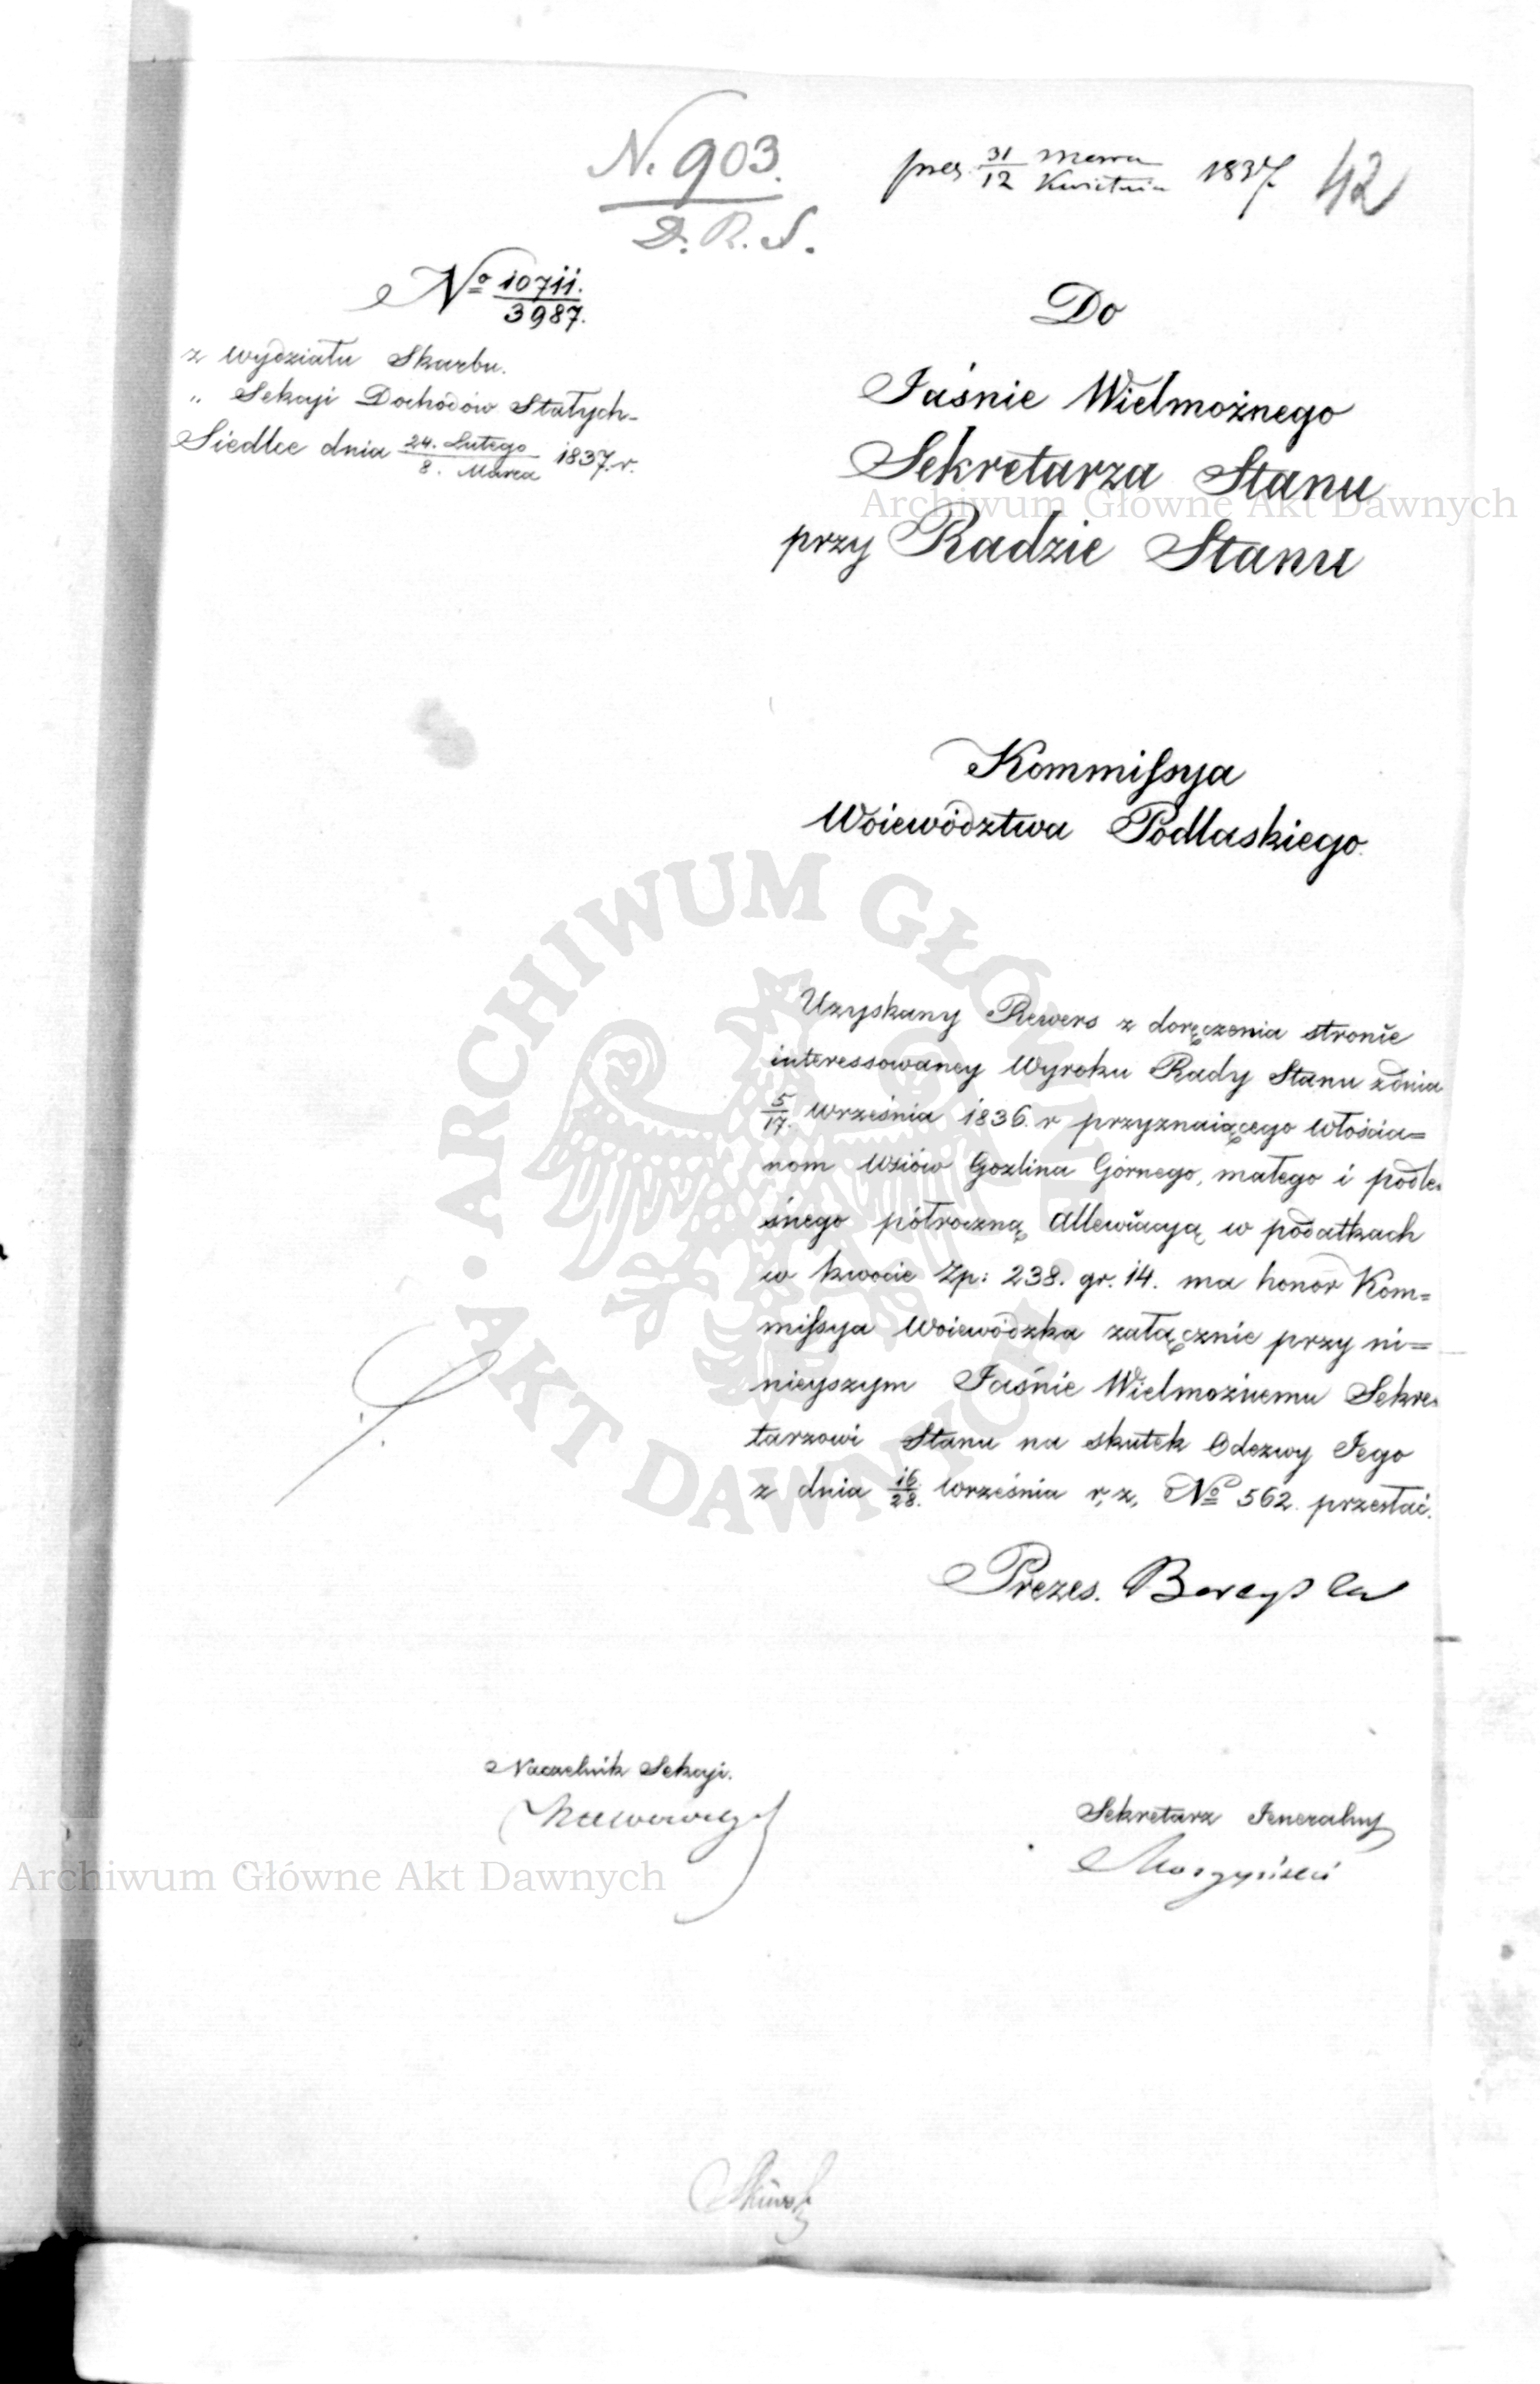 N. 903.
D. R. S.
prez. 31/12 Marca/Kwietnia 1837. 42
No 10711./3987.
z Wydziału Skarbu.
„ Sekcyi Dochodów Stałych
Siedlce dnia 24. Lutego/8. Marca 1837. r.
Do
Jaśnie Wielmożnego
Sekretarza Stanu
przy Radzie Stanu
Archiwum Główne Akt Dawnych
Kommissya
Woiewództwa Podlaskiego.
ARCHIWUM GŁÓWNE • AKT DAWNYCH •
Uzyskany Rewers z doręczenia stronie
interessowaney Wyroku Rady Stanu z dnia
5/17. Września 1836. r przyznaiącego włościa=
nom Wsiów Gozlina Górnego, małego i podle=
śnego półroczną allewiacyą w podatkach
w kwocie Zp: 238. gr. 14. ma honor Kom=
missya Woiewódzka załącznie przy ni=
nieyszym Jaśnie Wielmożnemu Sekre=
tarzowi Stanu na skutek Odezwy Jego
z dnia 16/28. Września r, z, No 562. przesłać.
Prezes.
Naczelnik Sekcyi.
Sekretarz Jeneralny
Archiwum Główne Akt Dawnych